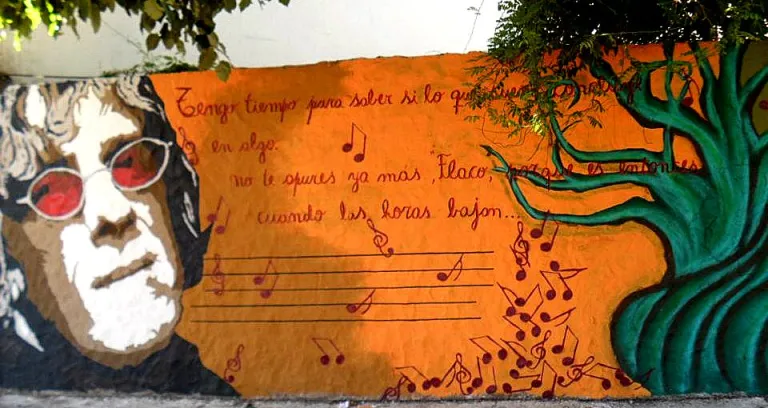 Tengo tiempo para saber si lo que sueño concluye
en algo.
no te apures ya más, "Flaco, porque es entonces
cuando las horas bajan...